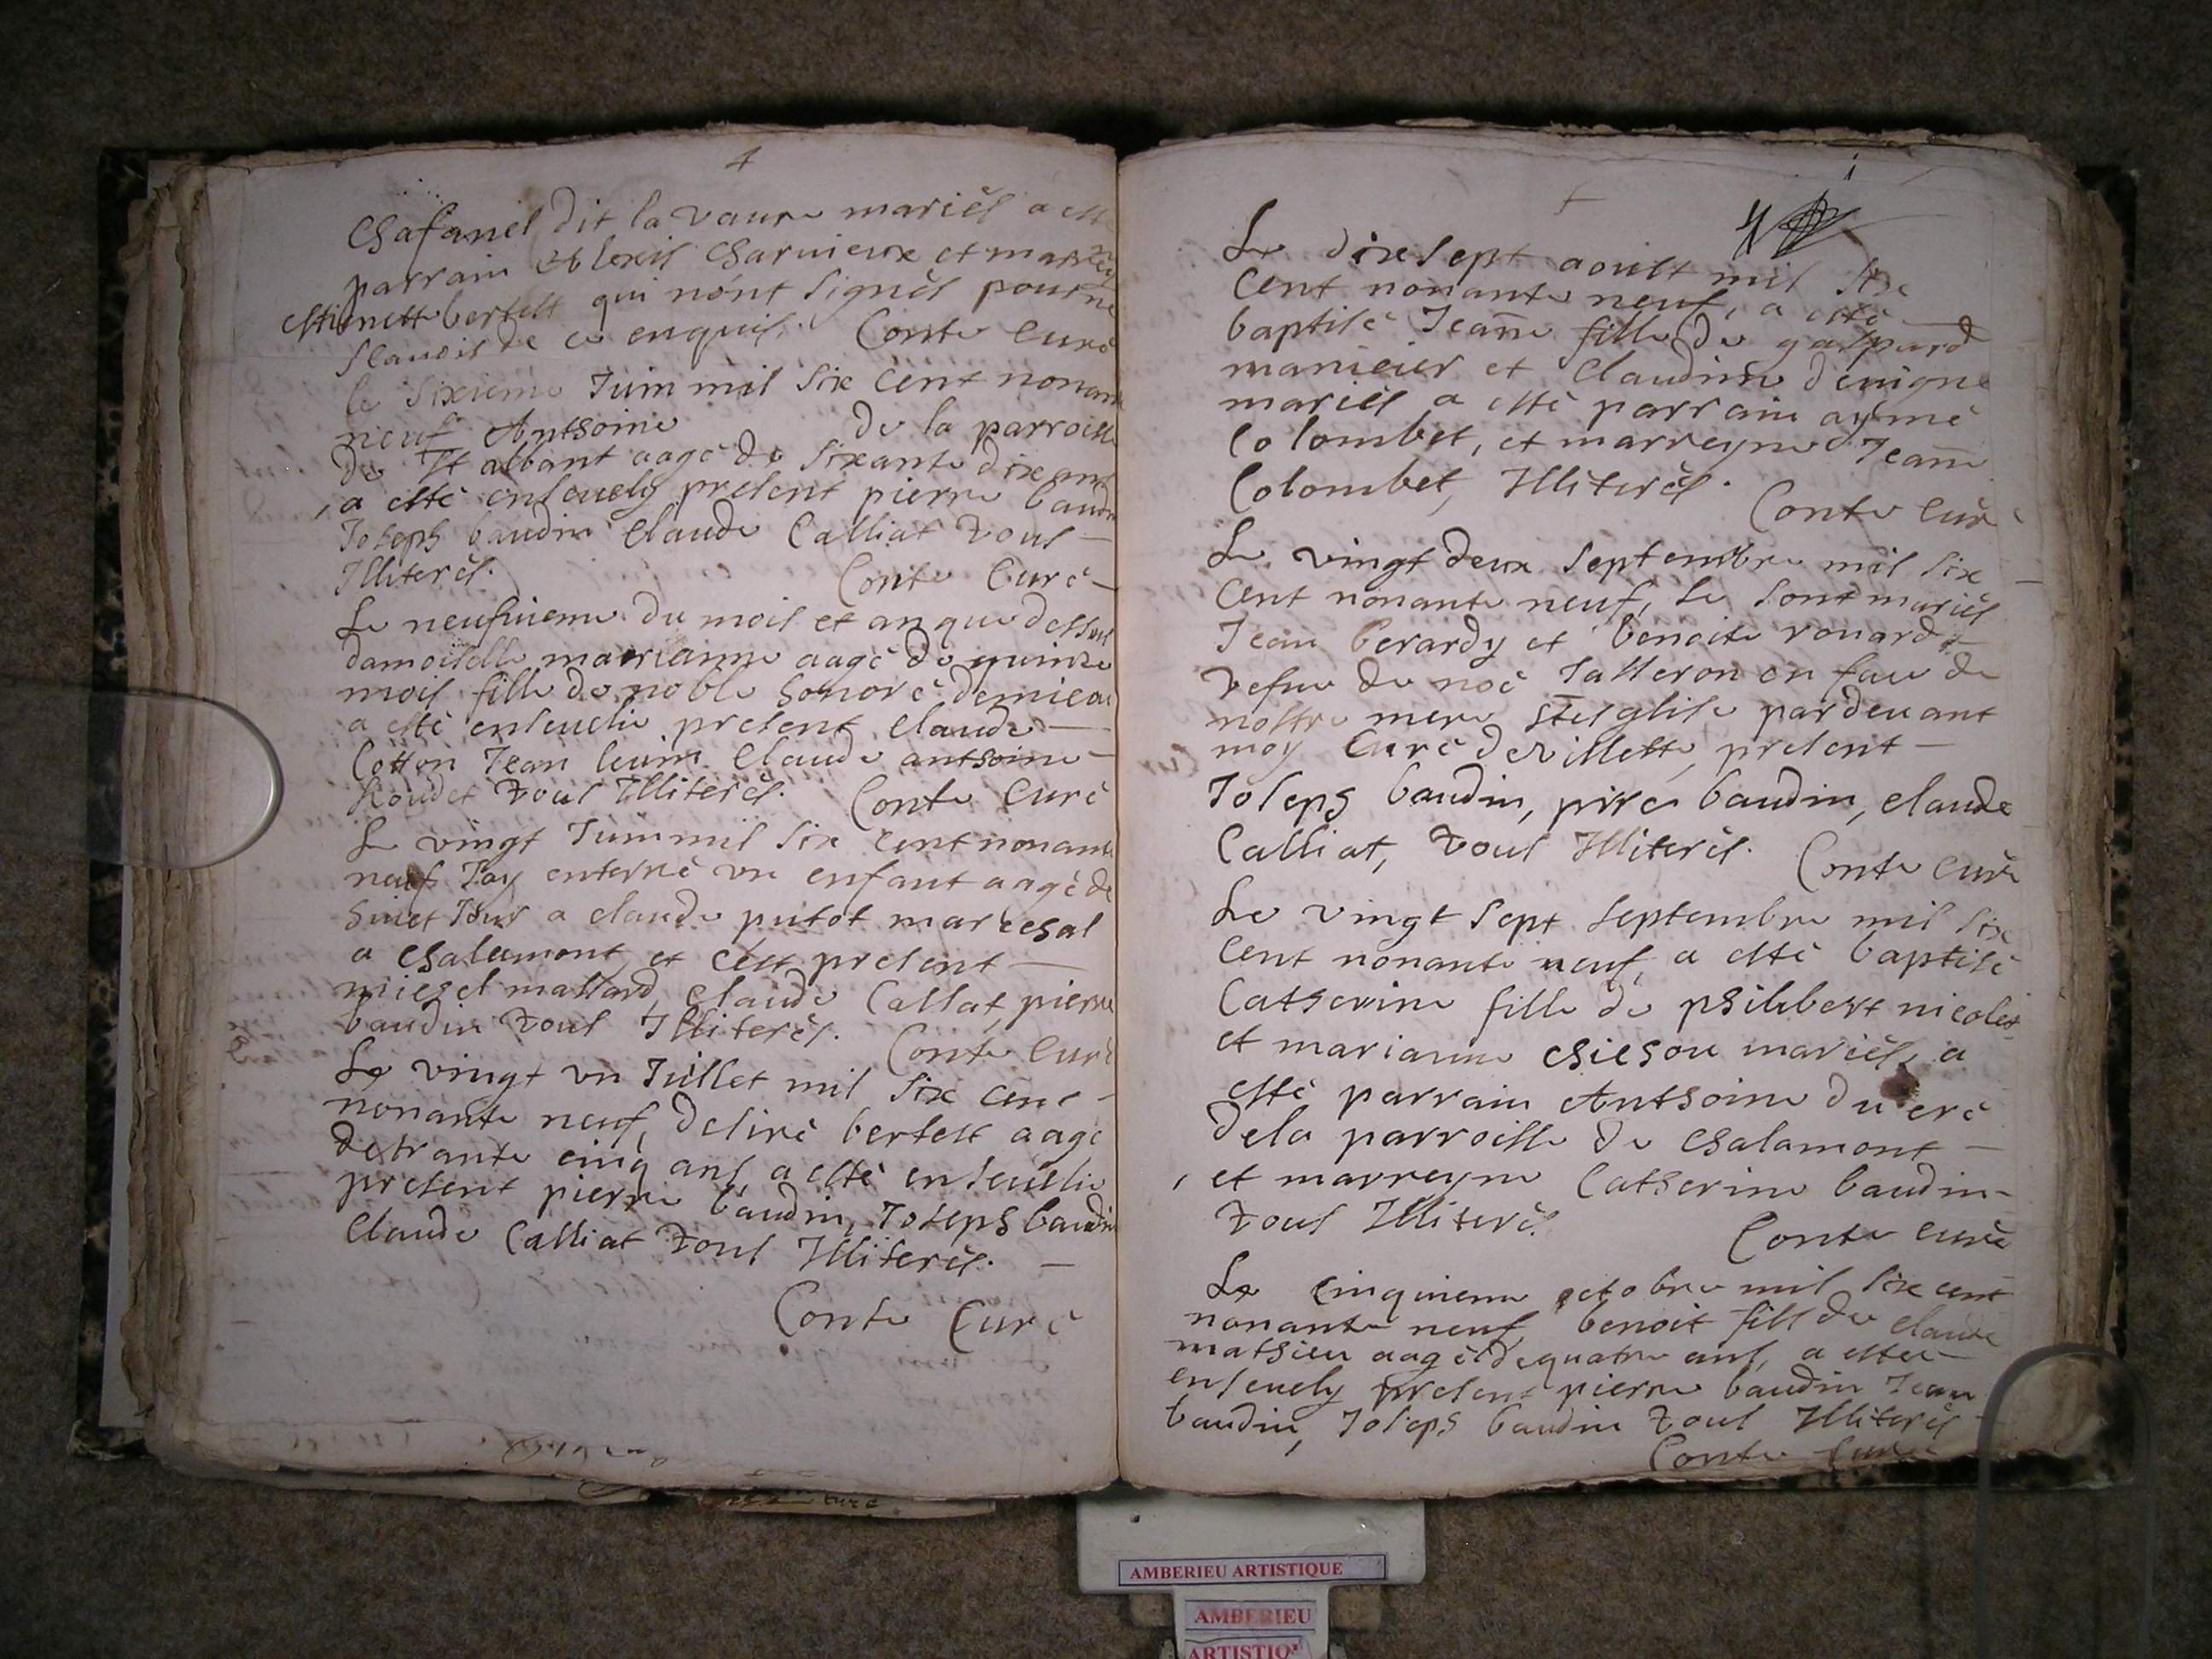 4
Chafanel dit la Vaure mariés a esté
parrain Alexis Charvieux et marreyne
Estiennette bertelt qui n'ont signés pour ne
scavoir de ce enquis. Conte Curé
le sixieme Juin mil six cent nonante
neuf Anthoine de la parroisse
de St albant aagé de sixante dix ans
a esté ensevely present pierre baudin
Joseph baudin Claude Calliat tous
Illiterés. Conte Curé
Le neufvieme du mois et an que dessus
damoiselle marianne aagé de quinze
mois fille de noble honoré
a esté ensevelie present Claude
Cotton Jean Claude anthoine
tous Illiterés. Conte Curé
Le vingt Juin mil six cent nonante
neuf J'ay enterré un enfant aagé de
huict Jour a claude putot marechal
a Chalamont et c'est present
michel mallard, Claude Callat, pierre
baudin tous Illiterés. Conte Curé
Le vingt un Juillet mil six cent
nonante neuf, desiré bertelt aagé
de trante cinq ans, a esté ensevelie
present pierre baudin, Joseph baudin
Claude Calliat tous Illiterés.
Conte Curé
Le dixsept aoust mil six
cent nonante neuf, a esté
baptisé Jeanne fille de gaspard
manicier et Claudine
mariés a esté parrain aymé
Colombet, et marreyne Jeanne
Colombet, Illiterés.
Conte Curé
Le vingt deux septembre mil six
cent nonante neuf, se sont mariés
Jean berardy et benoite ronard
vefve de noé Tasseron en face de
nostre mere Ste esglise pardevant
moy Curé de villette, present
Joseph baudin, pire baudin, claude
Calliat, tous Illiterés. Conte Curé
Le vingt sept septembre mil six
cent nonante neuf, a esté baptisé
Catherine fille de philibert nicolet
et marianne chichou mariés, a
esté parrain Anthoine du cré
de la parroisse de Chalamont
et marreyne Catherine baudin
tous Illiterés.
Conte Curé
Le cinquieme octobre mil six cent
nonante neuf benoit fils de claude
mathieu aagé de quatre ans, a estée
ensevely present pierre baudin Jean
baudin, Joseph baudin tous Illiterés
Conte Curé
AMBERIEU ARTISTIQUE
AMBERIEU
ARTISTIQ